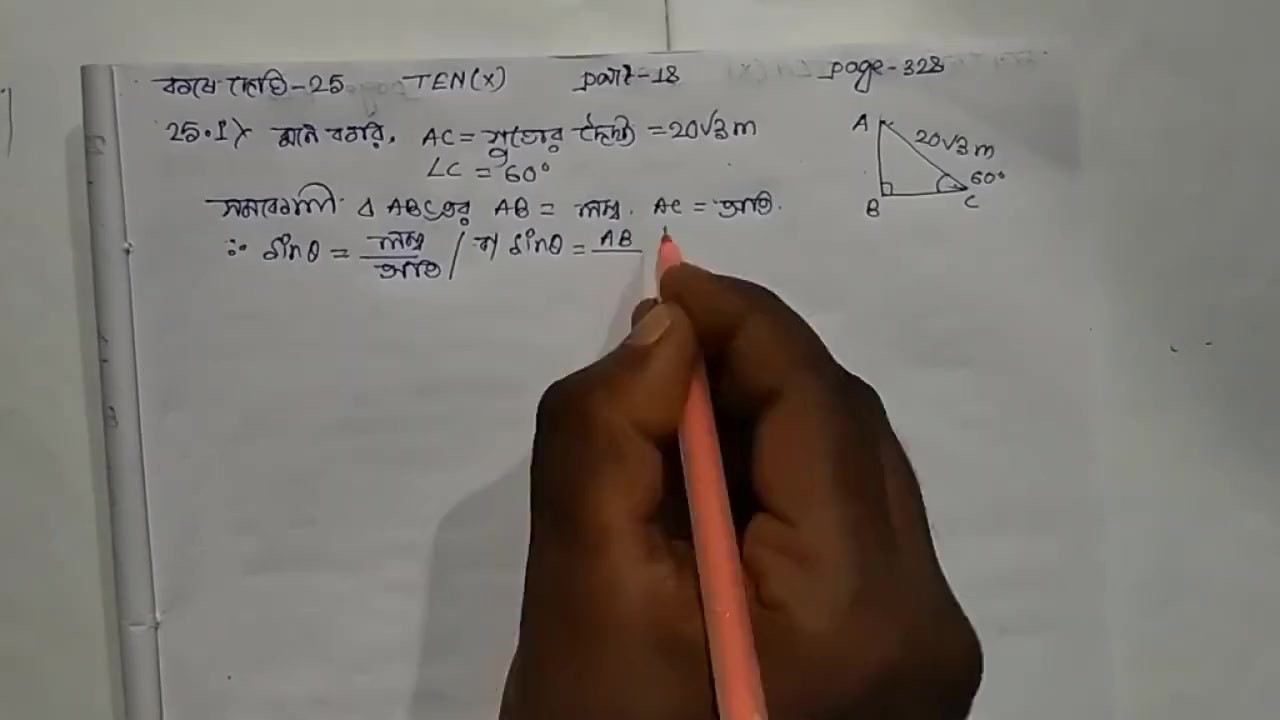 কষে দেখি-25 TEN(X) part-18 page-328
25.1) মনে করি, AC = সুতোর দৈর্ঘ্য = 20√3 m
∠C = 60°
সমকোণী Δ ABC এর AB = লম্ব. AC = অতি.
∴ sinθ = লম্ব/অতি / বা sinθ = AB
A 20√3 m
60°
B C